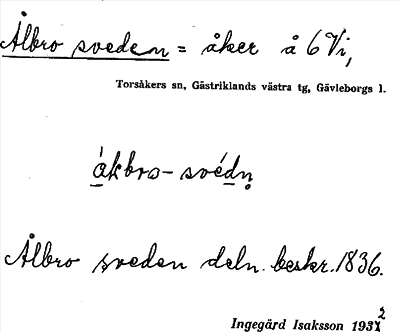 Ålbro sveden = åker å 6 Vi,
Torsåkers sn, Gästriklands västra tg, Gävleborgs l.
ákbro-svédn̥
Ålbro sveden deln. beskr. 1836.
Ingegärd Isaksson 1932